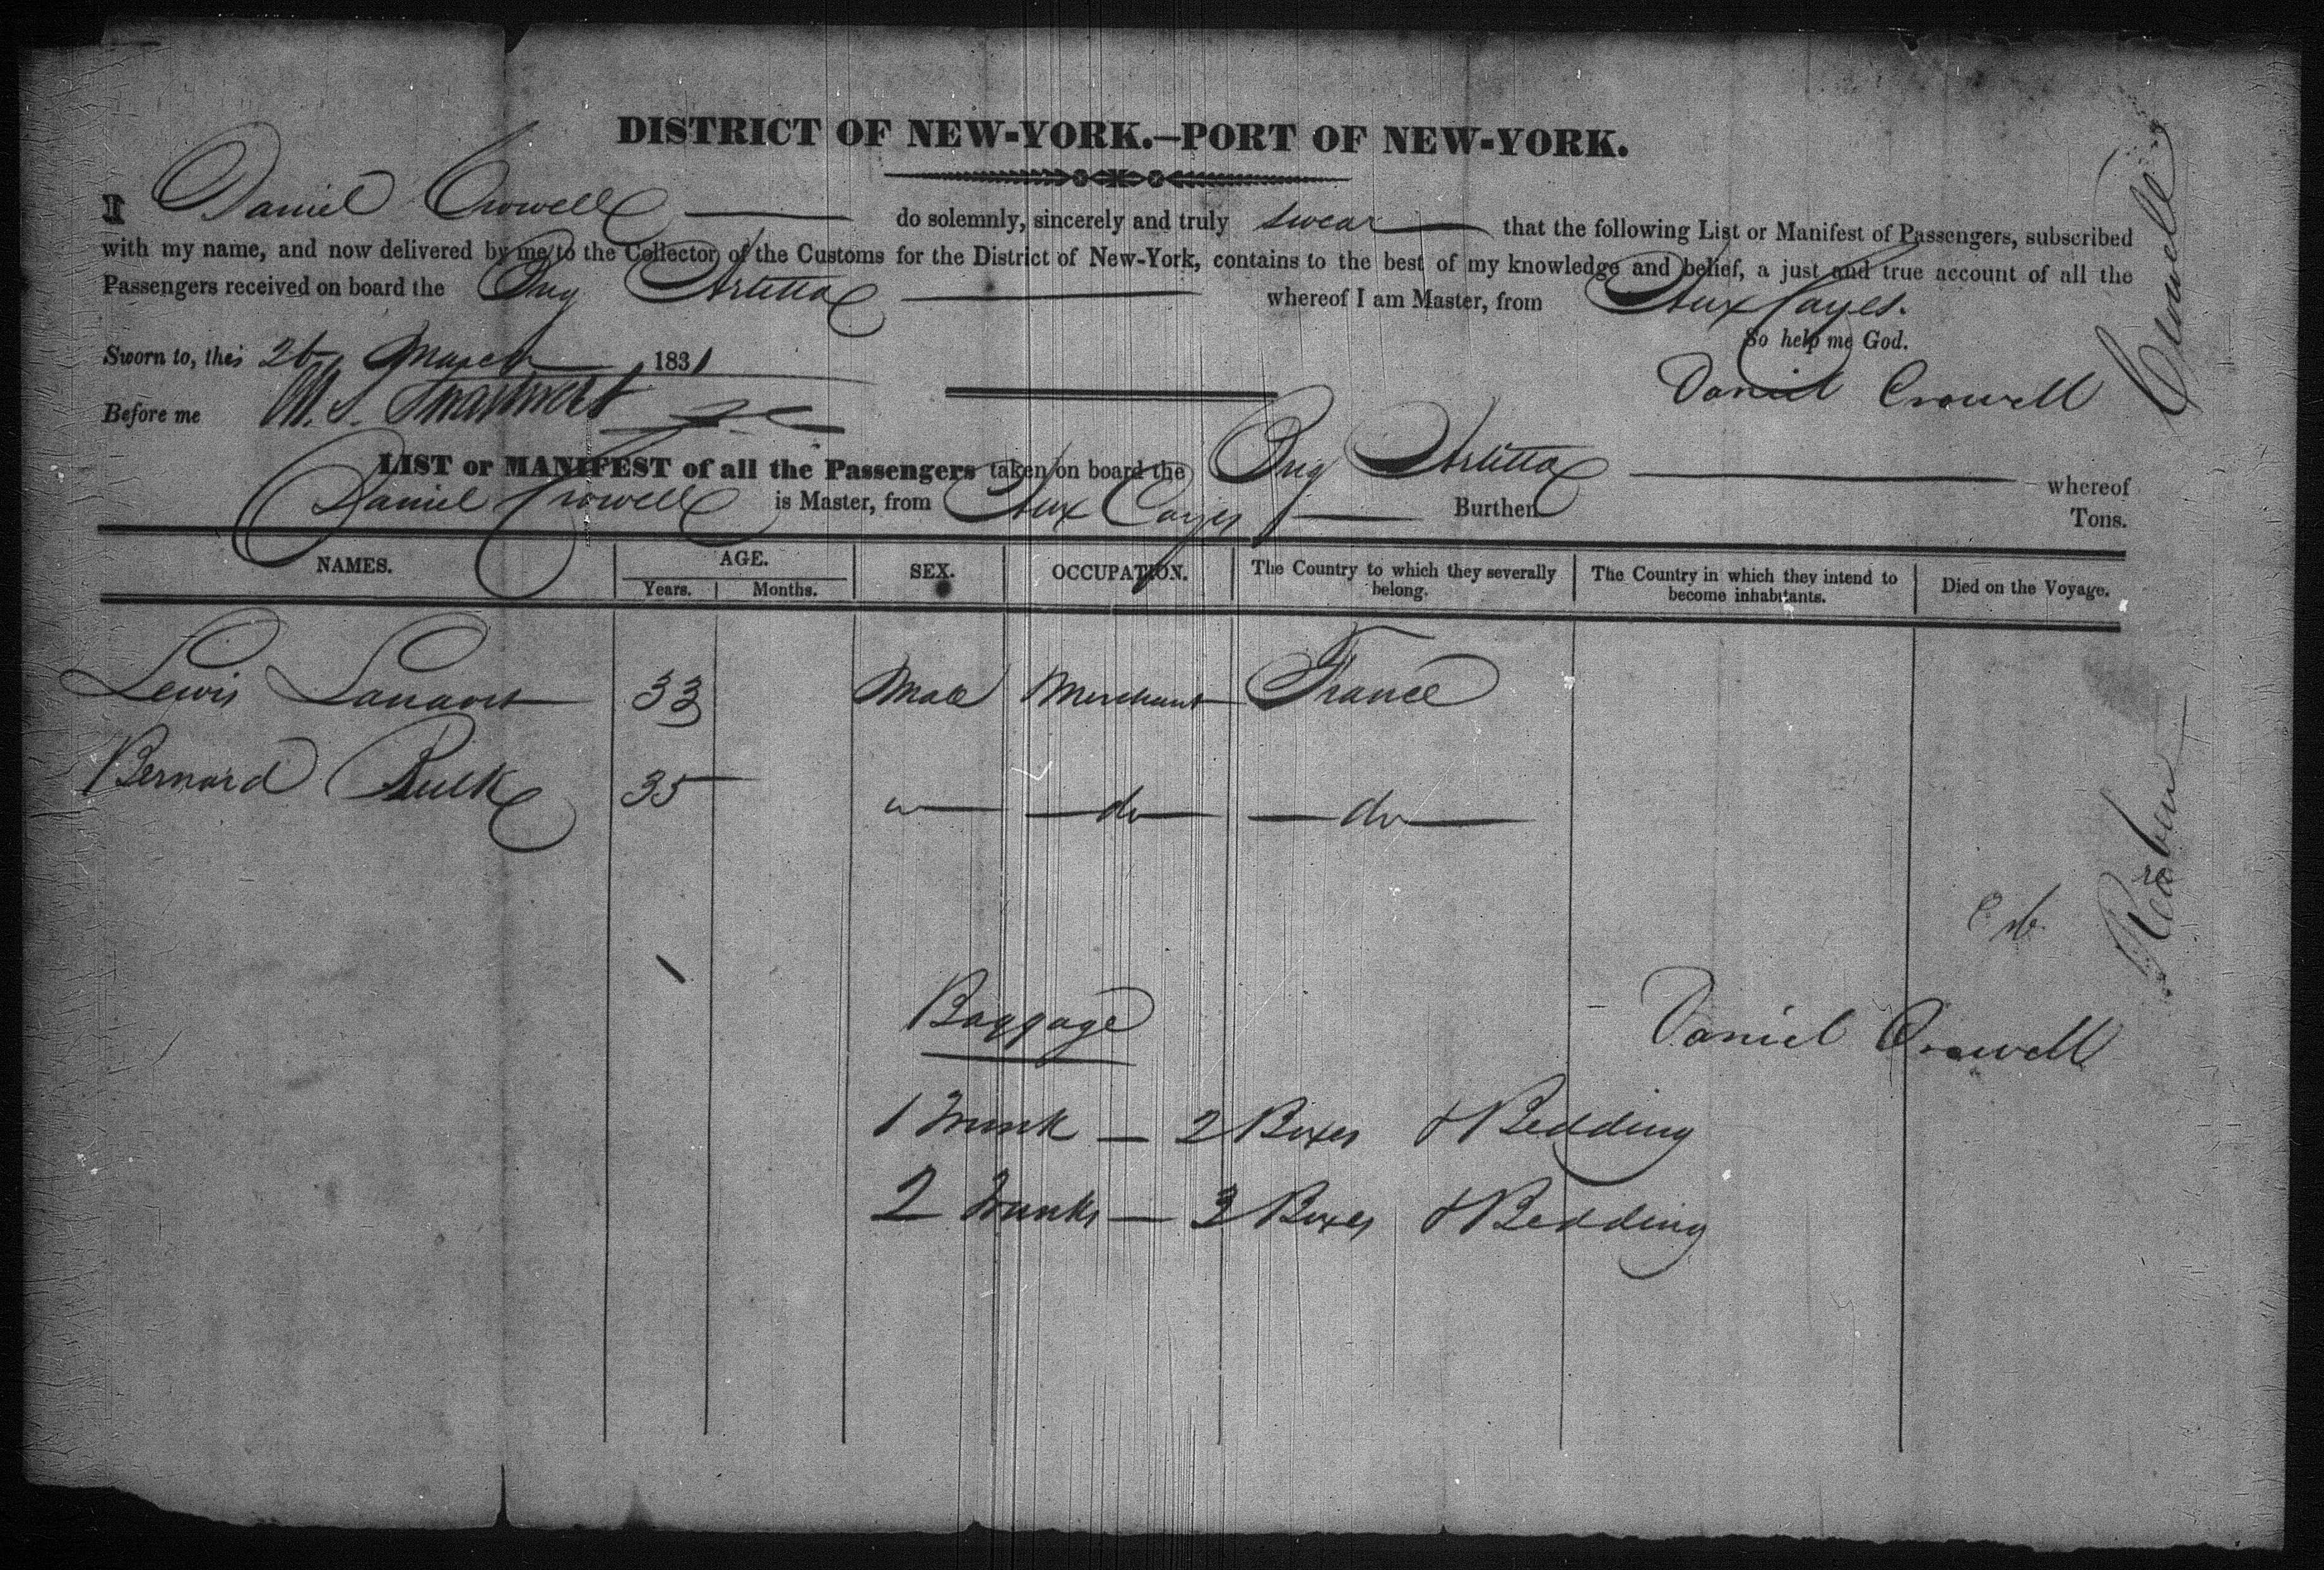 DISTRICT OF NEW-YORK.—PORT OF NEW-YORK.
I Daniel Crowell — do solemnly, sincerely and truly swear — that the following List or Manifest of Passengers, subscribed
with my name, and now delivered by me to the Collector of the Customs for the District of New-York, contains to the best of my knowledge and belief, a just and true account of all the
Passengers received on board the Brig — whereof I am Master, from Aux Cayes.
So help me God.
Sworn to, this 26 March 1831
Daniel Crowell
Before me
LIST or MANIFEST of all the Passengers taken on board the Brig — whereof
Daniel Crowell is Master, from Aux Cayes — Burthen Tons.
NAMES. AGE. SEX. OCCUPATION. The Country to which they severally belong. The Country in which they intend to become inhabitants. Died on the Voyage.
Years. Months.
Lewis 33 Male Merchant France
Bernard 35 — do — — do —
Baggage
Daniel Crowell
1 Trunk — 2 Boxes & Bedding
2 Trunks — 3 Boxes & Bedding
Crowell